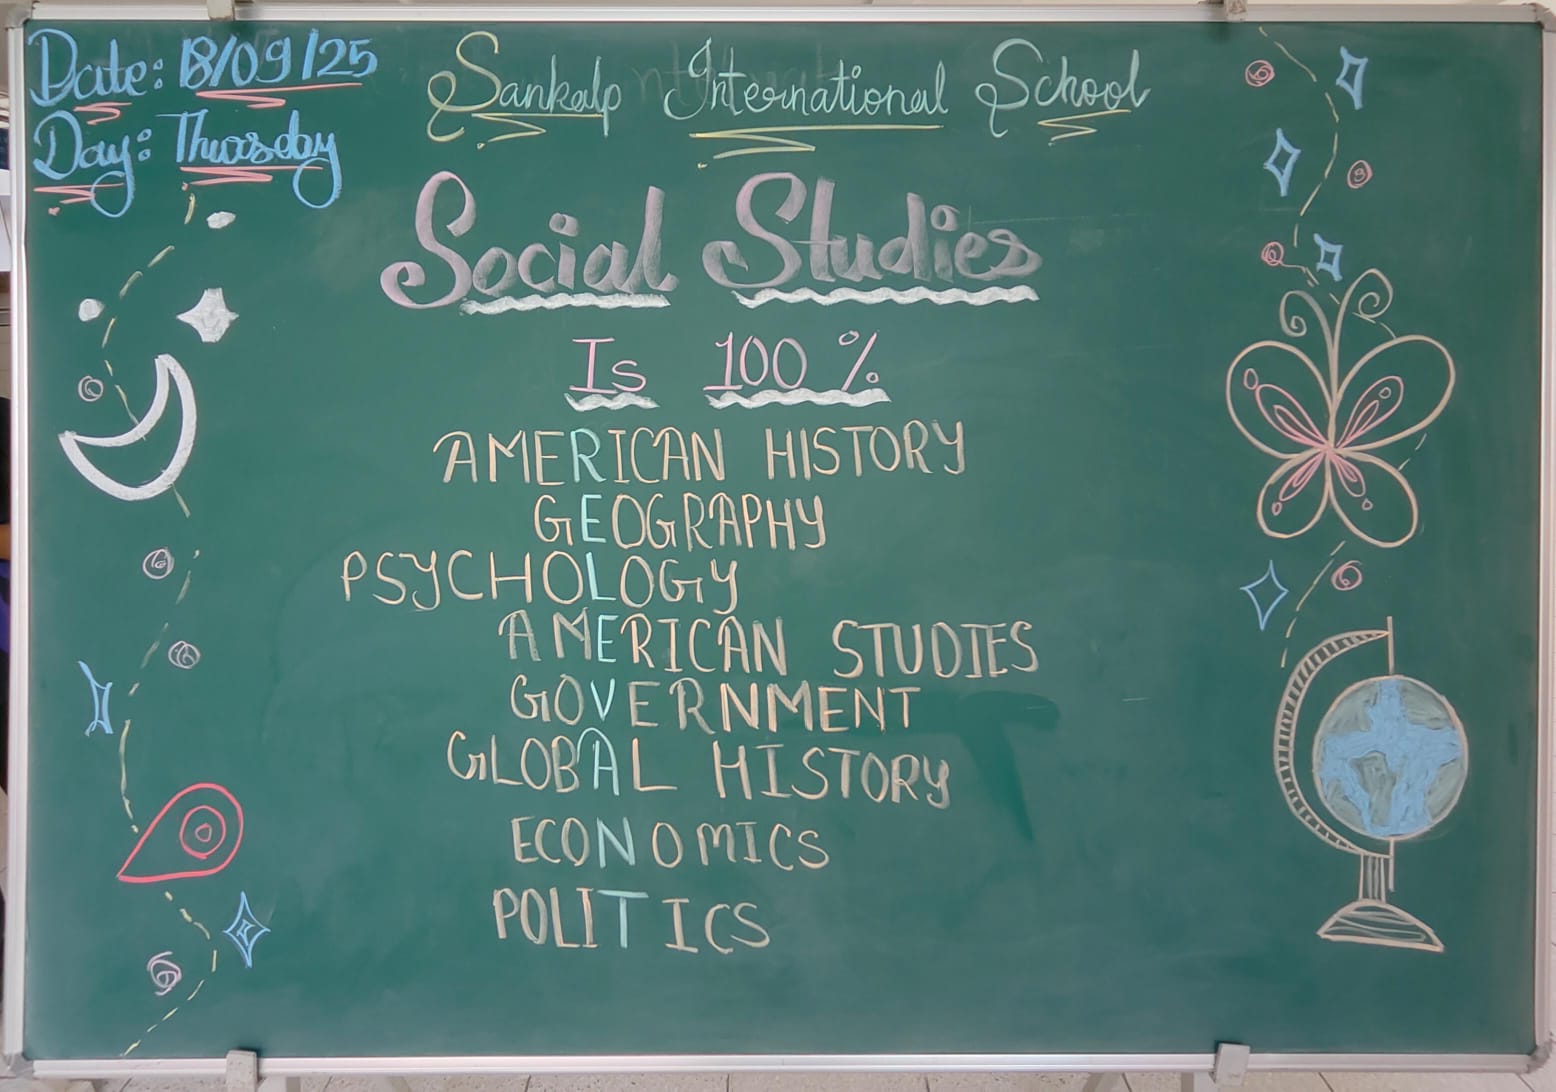 Date: 18/09/25
Day: Thursday
Sankalp International School
Social Studies
Is 100 %
AMERICAN HISTORY
GEOGRAPHY
PSYCHOLOGY
AMERICAN STUDIES
GOVERNMENT
GLOBAL HISTORY
ECONOMICS
POLITICS